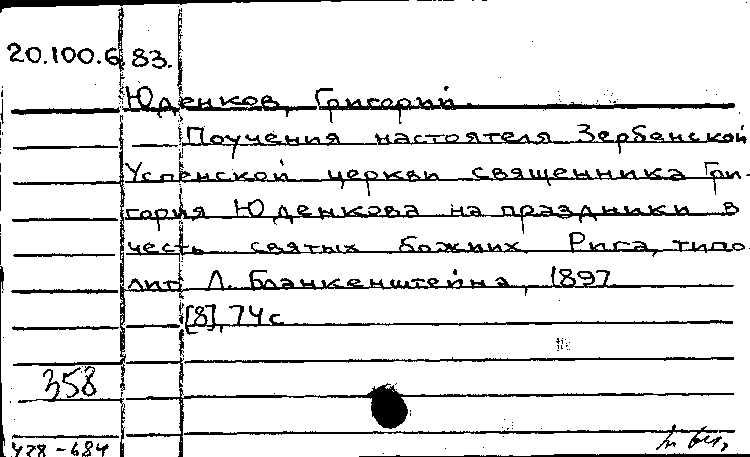 20.100.6.83.
Юденков, Григорий.
Поучения настоятеля Зербенской
Успенской церкви священника Гри-
гория Юденкова на праздники в
честь святых божиих. Рига, типо-
лит. Л. Бланкенштейна, 1897
[8], 74 с
358
428-684